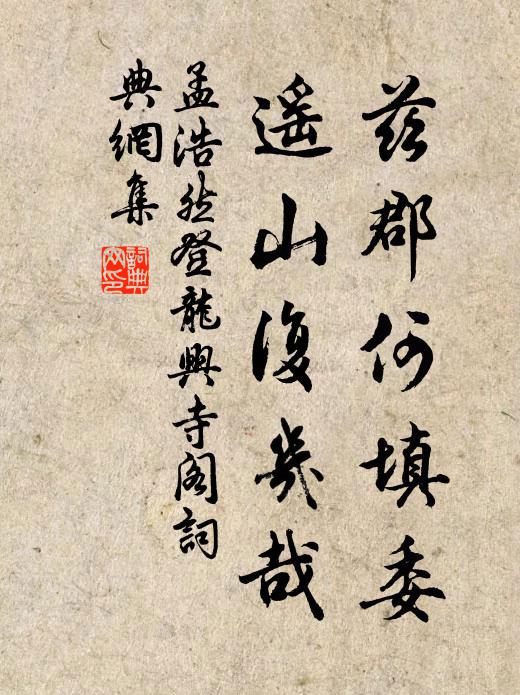 茲郡何填委
遥山復幾哉
孟浩然登龍興寺閣詞
典網集
詞典